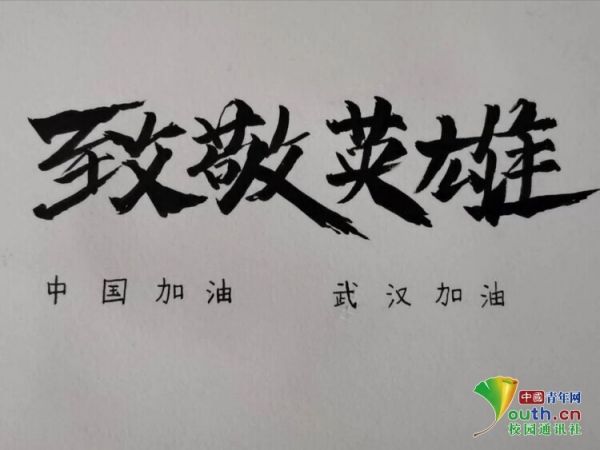 致敬英雄
中国加油 武汉加油
中國青年网
youth.cn
校园通讯社